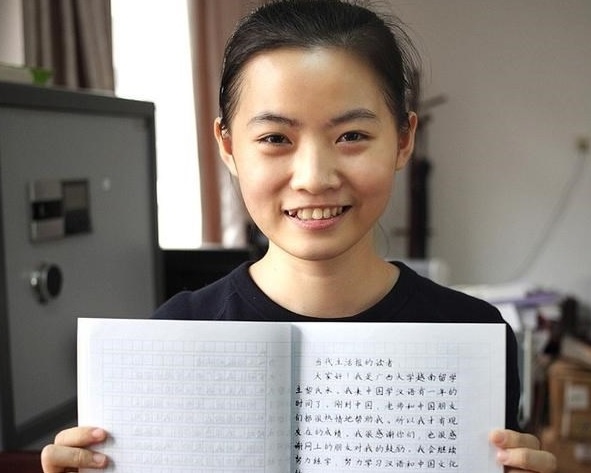 当代生活报的读者
大家好！我是广西大学越南留学
生黎氏木。我来中国学汉语有一年的
时间了，刚到中国，老师和中国朋友
们都很热情地帮助我，所以我才有现
在的成绩，我很感谢你们，也很感
谢网上的朋友对我的鼓励，我会继续
努力练字，努力学习汉语和中国文化